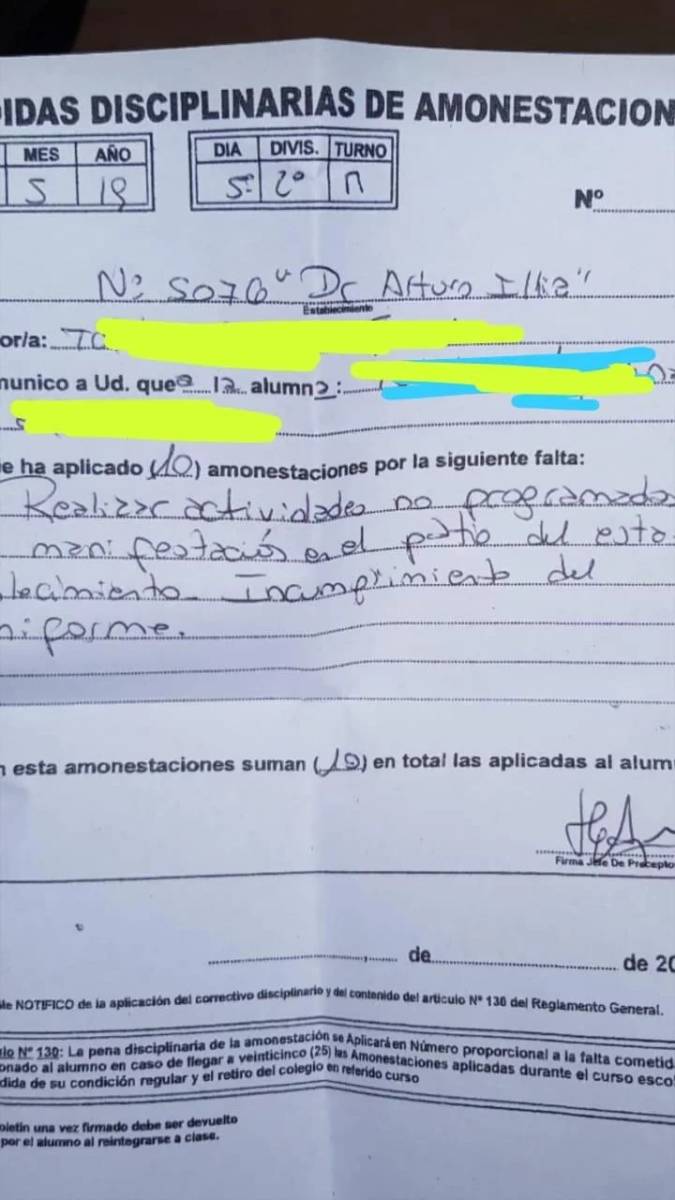 DIDAS DISCIPLINARIAS DE AMONESTACION
MES AÑO DIA DIVIS. TURNO
5 19 5º 2º
Nº
Nº 5076 "Dr Arturo Illia"
Establecimiento
or/a:
munico a Ud. que a la alumna:
e ha aplicado (10) amonestaciones por la siguiente falta:
Realizar actividades no programadas
manifestación en el patio del esta
lecimiento. Incumprimiento del
niforme.
n esta amonestaciones suman (10) en total las aplicadas al alum
Firma Jefe De Precepto
, de de 20
Me NOTIFICO de la aplicación del correctivo disciplinario y del contenido del articulo Nº 130 del Reglamento General.
ulo Nº 130: La pena disciplinaria de la amonestación se Aplicará en Número proporcional a la falta cometid
onado al alumno en caso de llegar a veinticinco (25) las Amonestaciones aplicadas durante el curso esco
dida de su condición regular y el retiro del colegio en referido curso
oletin una vez firmado debe ser devuelto
por el alumno al reintegrarse a clase.